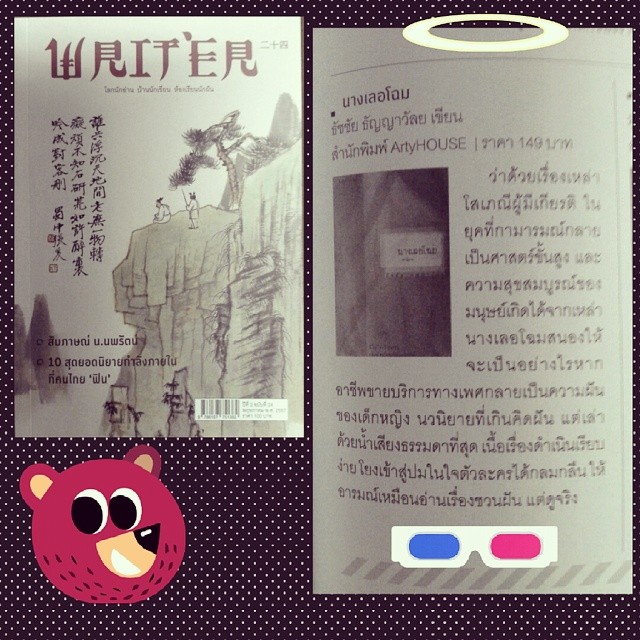 WRIT'ER
二十四
โลกนักอ่าน บ้านนักเขียน ห้องเรียนนักฝัน
สัมภาษณ์ น.นพรัตน์
10 สุดยอดนิยายกำลังภายใน
ที่คนไทย 'ฟิน'
นางเลอโฉม
ธัชชัย ธัญญาวัลย เขียน
สำนักพิมพ์ ArtyHOUSE | ราคา 149 บาท
นางเลอโฉม
ว่าด้วยเรื่องเหล่า
โสเภณีผู้มีเกียรติ ใน
ยุคที่กามารมณ์กลาย
เป็นศาสตร์ชั้นสูง และ
ความสุขสมบูรณ์ของ
มนุษย์เกิดได้จากเหล่า
นางเลอโฉมสนองให้
จะเป็นอย่างไรหาก
อาชีพขายบริการทางเพศกลายเป็นความฝัน
ของเด็กหญิง นวนิยายที่เกินคิดฝัน แต่เล่า
ด้วยน้ำเสียงธรรมดาที่สุด เนื้อเรื่องดำเนินเรียบ
ง่าย โยงเข้าสู่ปมในใจตัวละครได้กลมกลืน ให้
อารมณ์เหมือนอ่านเรื่องชวนฝัน แต่ดูจริง